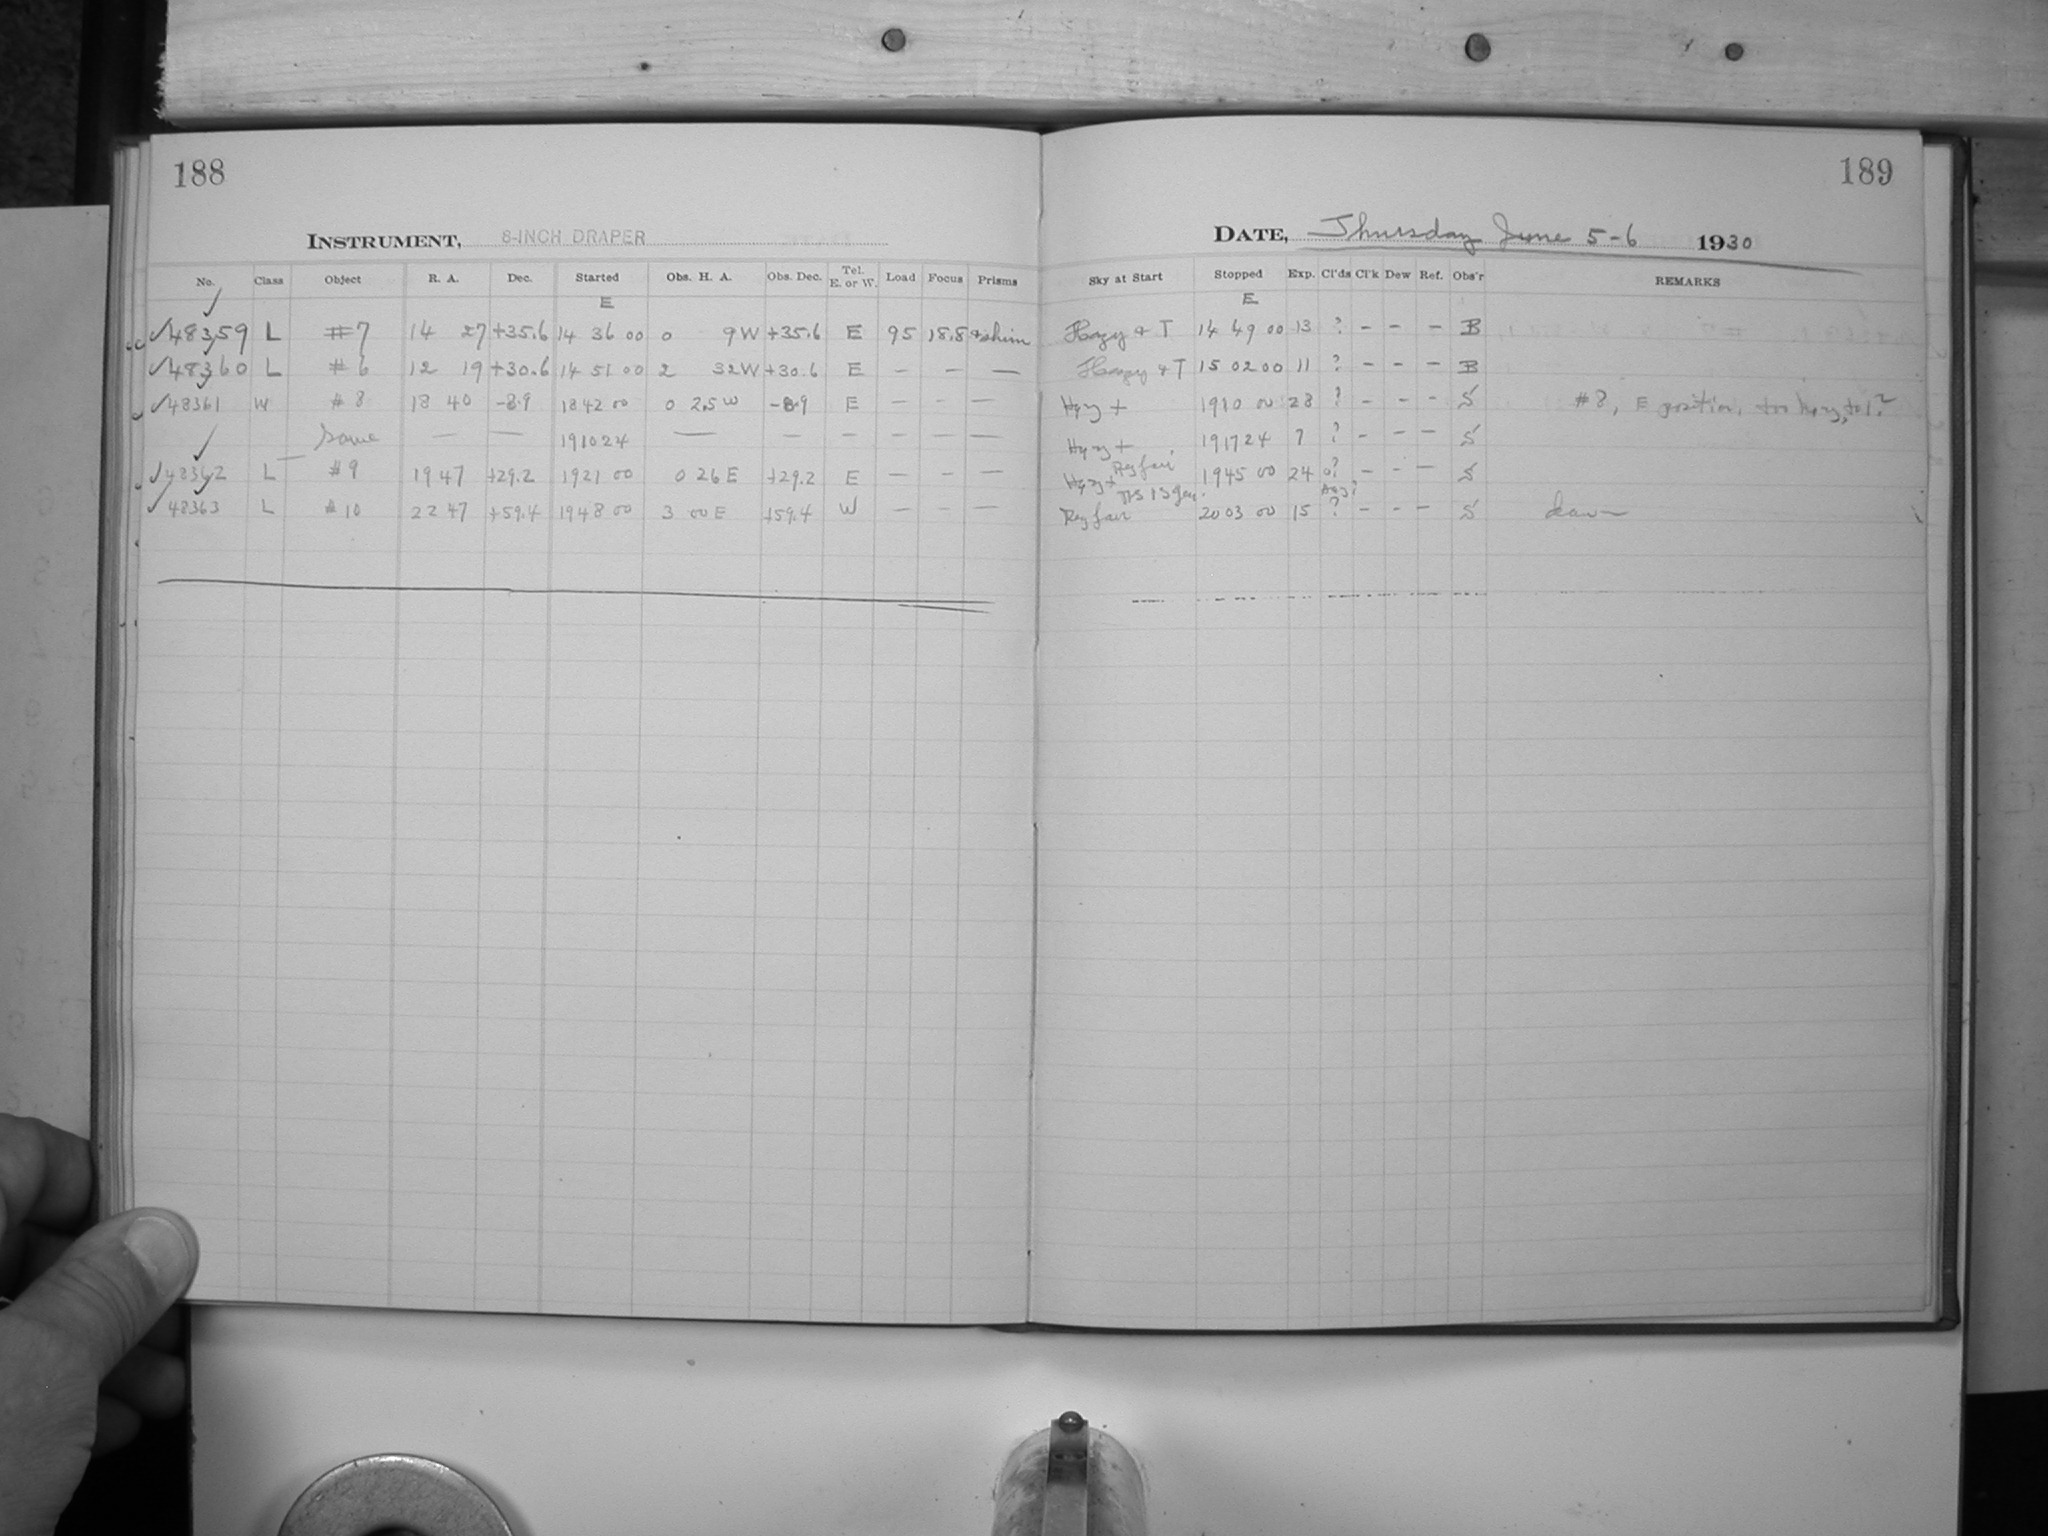 188
INSTRUMENT, 8-INCH DRAPER
No. Class Object R. A. Dec. Started Obs. H. A. Obs. Dec. Tel. E. or W. Load Focus Prisms
E
48359 L #7 14 27 +35.6 14 36 00 0 9 W +35.6 E 95 18.8
48360 L #6 12 19 +30.6 14 51 00 2 32 W +30.6 E — — —
48361 W #8 18 40 -8.9 18 42 00 0 2.5 W -8.9 E — — —
Same — — 19 10 24 — — — — — —
48362 L #9 19 47 +29.2 19 21 00 0 26 E +29.2 E — — —
48363 L #10 22 47 +59.4 19 48 00 3 00 E +59.4 W — — —
189
DATE, Thursday June 5-6 1930
Sky at Start Stopped Exp. Cl'ds Cl'k Dew Ref. Obs'r REMARKS
E
Hazy + T 14 49 00 13 ? — — — B
Hazy + T 15 02 00 11 ? — — — B
Hazy + 19 10 00 28 ? — — — S #8, E position, too
Hazy + 19 17 24 7 ? — — — S
Hazy + 19 45 00 24 ? — — — S
20 03 00 15 ? — — — S dawn